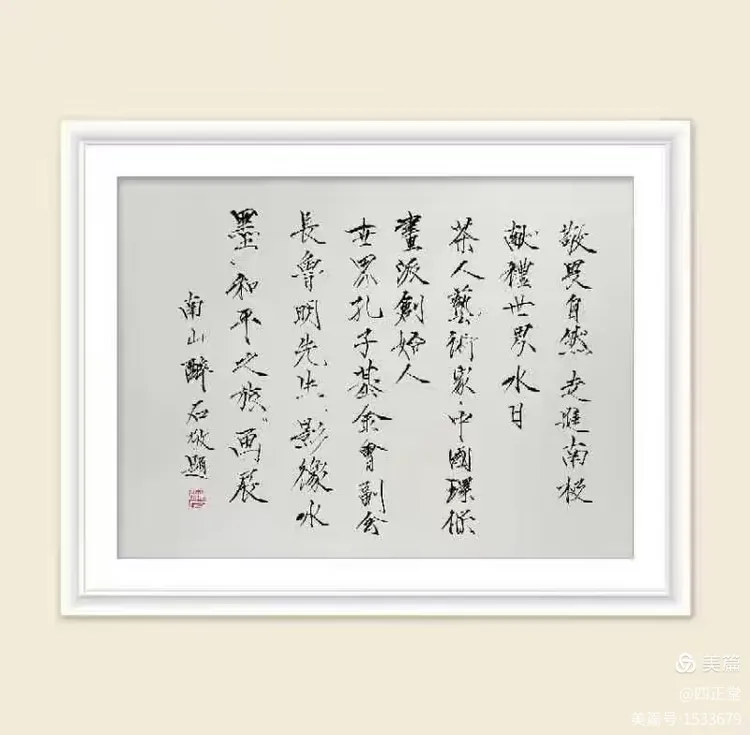 敬畏自然 走進南极
献禮世界水日
茶人藝術家·中國環保
畫派創始人
世界孔子基金會副會
長魯明先生“影像水
墨、和平之旅”画展
南山醉石敬題
美篇
@四正堂
美篇号:1533679